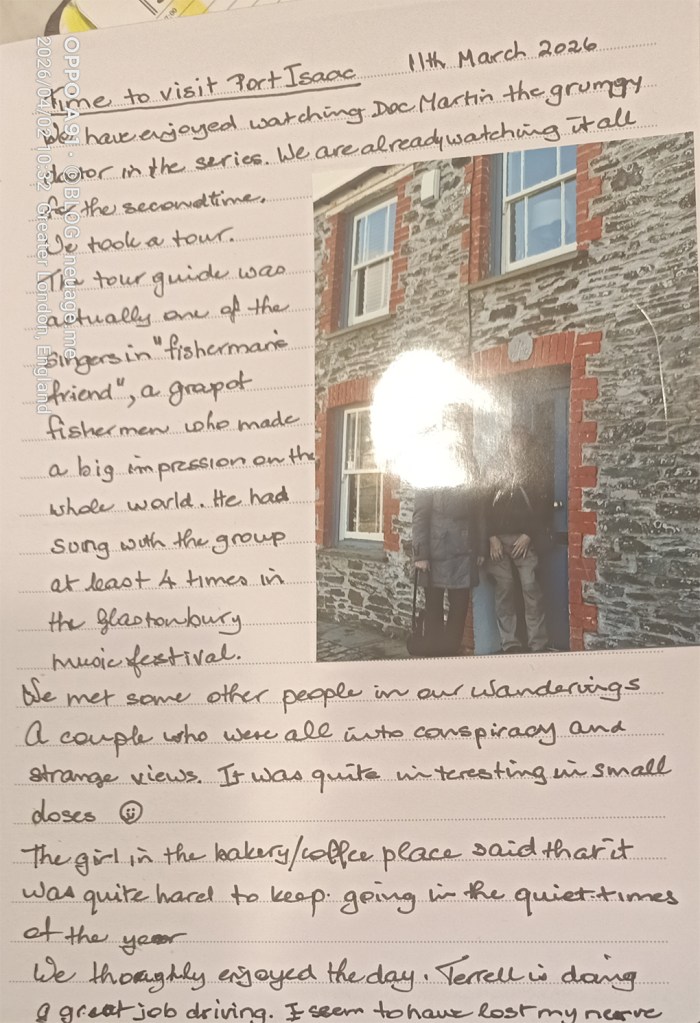 Time to visit Port Isaac 11th March 2026
We have enjoyed watching Doc Martin the grumpy
doctor in the series. We are already watching it all
for the second time.
We took a tour.
The tour guide was
actually one of the
singers in "fisherman's
friend", a grapot
fishermen who made
a big impression on the
whole world. He had
sung with the group
at least 4 times in
the Glastonbury
music festival.
We met some other people in our wanderings
A couple who were all into conspiracy and
strange views. It was quite interesting in small
doses ☺
The girl in the bakery/coffee place said that it
was quite hard to keep going in the quiet times
of the year
We thoroughly enjoyed the day. Terrell is doing
a great job driving. I seem to have lost my nerve
OPPO A91 · ©BLOG.netage.me
2026/04/02 Greater London, England